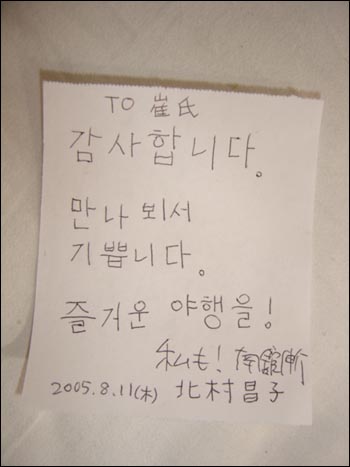 TO 崔氏
감사합니다。
만나 뵈서
기쁩니다。
즐거운 야행을!
私も!
2005.8.11(木) 北村昌子